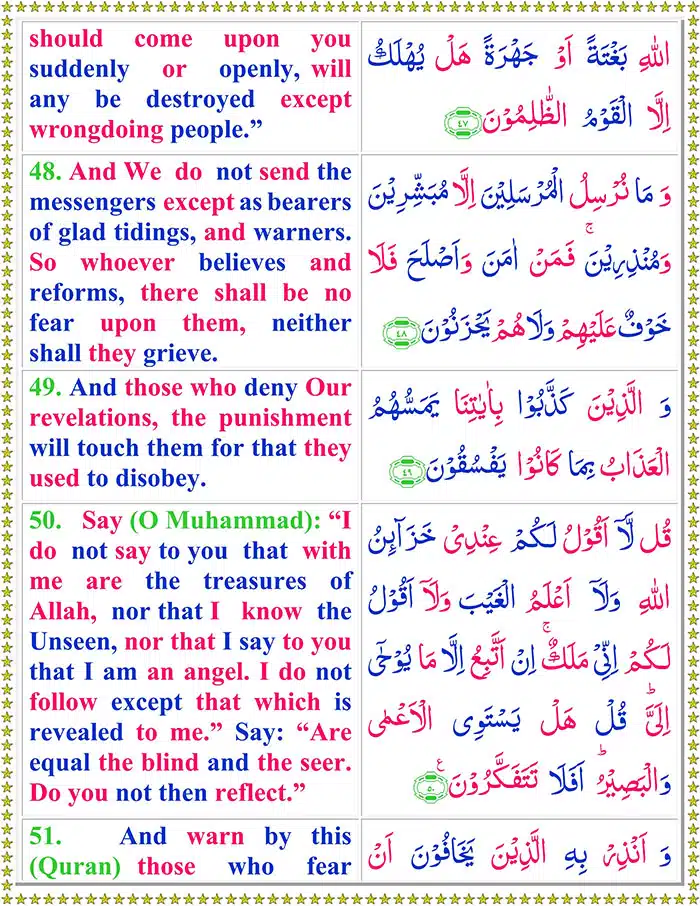 should come upon you
suddenly or openly, will
any be destroyed except
wrongdoing people.”
اللّٰهِ بَغْتَةً اَوْ جَهْرَةً هَلْ يُهْلَكُ
اِلَّا الْقَوْمُ الظّٰلِمُوْنَ ﴿۴۷﴾
48. And We do not send the
messengers except as bearers
of glad tidings, and warners.
So whoever believes and
reforms, there shall be no
fear upon them, neither
shall they grieve.
وَ مَا نُرْسِلُ الْمُرْسَلِيْنَ اِلَّا مُبَشِّرِيْنَ
وَمُنْذِرِيْنَ ۚ فَمَنْ اٰمَنَ وَاَصْلَحَ فَلَا
خَوْفٌ عَلَيْهِمْ وَلَا هُمْ يَحْزَنُوْنَ ﴿۴۸﴾
49. And those who deny Our
revelations, the punishment
will touch them for that they
used to disobey.
وَ الَّذِيْنَ كَذَّبُوْا بِاٰيٰتِنَا يَمَسُّهُمُ
الْعَذَابُ بِمَا كَانُوْا يَفْسُقُوْنَ ﴿۴۹﴾
50. Say (O Muhammad): “I
do not say to you that with
me are the treasures of
Allah, nor that I know the
Unseen, nor that I say to you
that I am an angel. I do not
follow except that which is
revealed to me.” Say: “Are
equal the blind and the seer.
Do you not then reflect.”
قُل لَّاۤ اَقُوْلُ لَكُمْ عِنْدِىْ خَزَآٮِٕنُ
اللّٰهِ وَلَاۤ اَعْلَمُ الْغَيْبَ وَلَاۤ اَقُوْلُ
لَكُمْ اِنِّىْ مَلَكٌ ۚ اِنْ اَتَّبِعُ اِلَّا مَا يُوْحٰٓى
اِلَىَّ ؕ قُلْ هَلْ يَسْتَوِى الْاَعْمٰى
وَالْبَصِيْرُ ؕ اَفَلَا تَتَفَكَّرُوْنَ ﴿۵۰﴾ ع
51. And warn by this
(Quran) those who fear
وَ اَنْذِرْ بِهِ الَّذِيْنَ يَخَافُوْنَ اَنْ